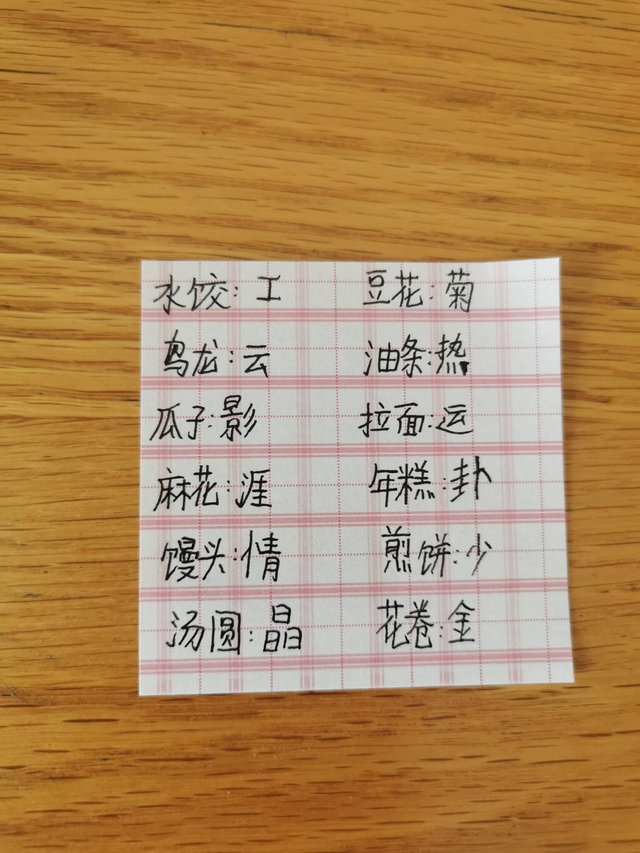 水饺:工 豆花:菊
乌龙:云 油条:热
瓜子:影 拉面:运
麻花:涯 年糕:卦
馒头:情 煎饼:少
汤圆:晶 花卷:金